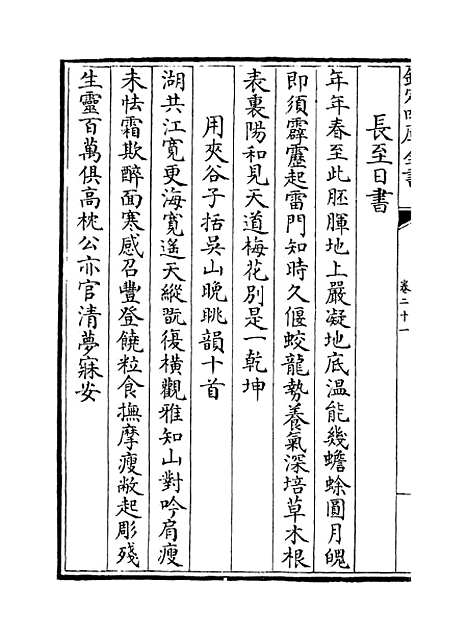 欽定四庫全書
卷二十一
長至日書
年年春至此胚腪地上嚴凝地底温能幾蟾蜍圓月魄
即須霹靂起雷門知時久偃蛟龍勢養氣深培草木根
表裏陽和見天道梅花別是一乾坤
用夾谷子括吳山晚眺韻十首
湖共江寛更海寛遥天縱翫復横觀雅知山對吟肩瘦
未怯霜欺醉面寒感召豐登饒粒食撫摩瘦敝起彫殘
生靈百萬俱高枕公亦官清夢寐安